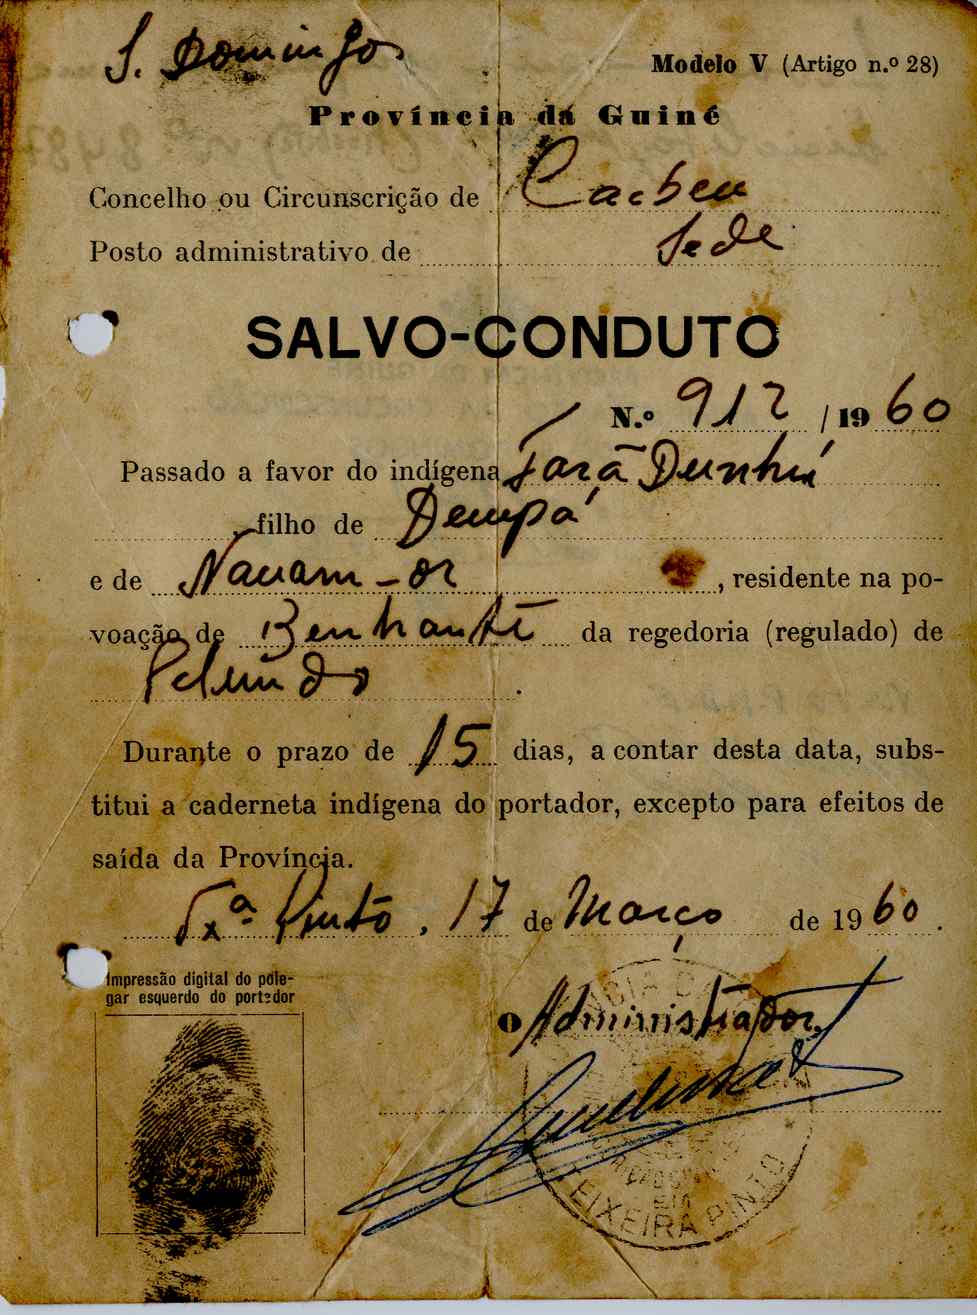 S. Domingos
Modelo V (Artigo n.º 28)
Província da Guiné
Concelho ou Circunscrição de Cacheu
Posto administrativo de Sede
SALVO-CONDUTO
N.º 912 / 1960
Passado a favor do indígena Tarã Dunhá
filho de Dempá
e de Nauam-or, residente na po-
voação de Benhante da regedoria (regulado) de
Pelundo.
Durante o prazo de 15 dias, a contar desta data, subs-
titui a caderneta indígena do portador, excepto para efeitos de
saída da Província.
Tx.ª Pinto, 17 de Março de 1960.
Impressão digital do pole-
gar esquerdo do portador
O Administrador,
TEIXEIRA PINTO